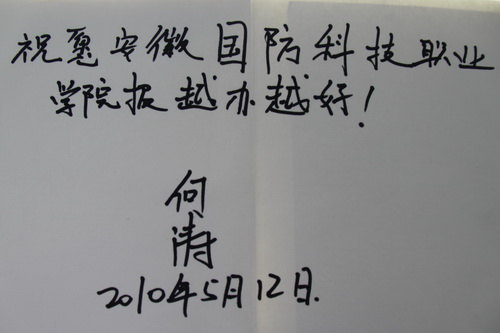 祝愿安徽国防科技职业
学院报越办越好！
何
涛
2010年5月12日.